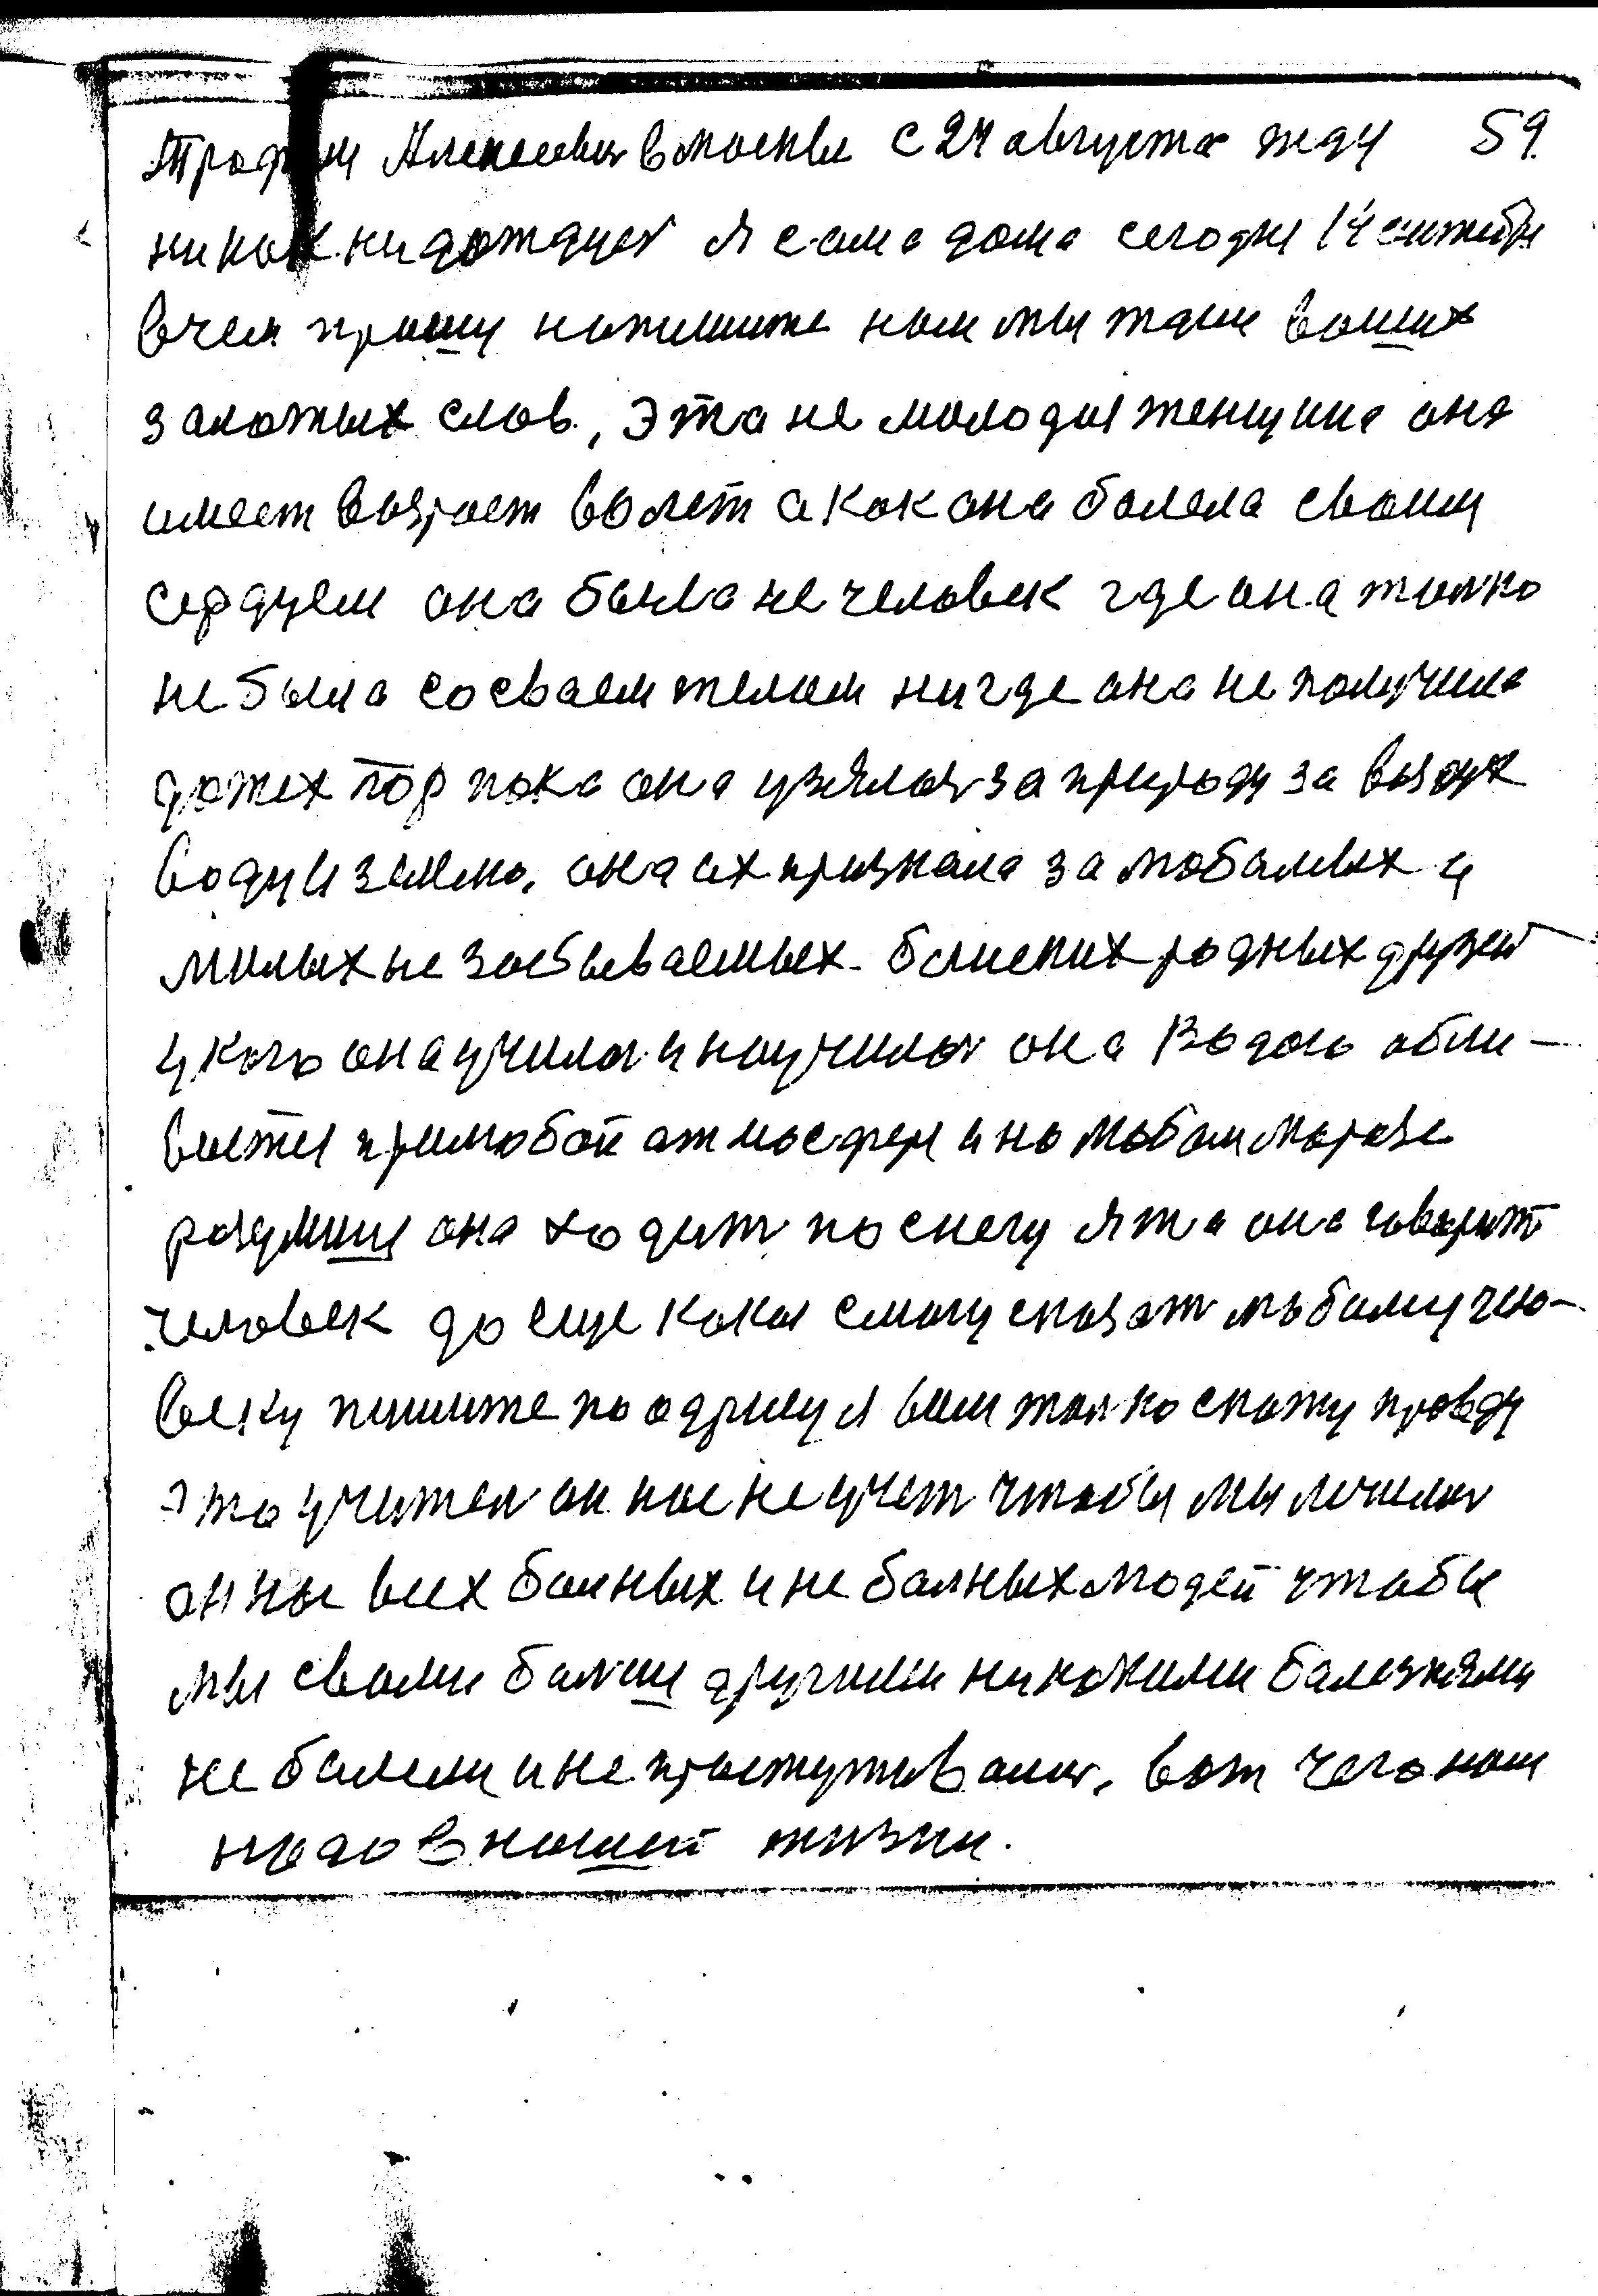 Трофим Алексеевич в москве с 24 августа жду 59.
никак ни дождус я сама дома сегодня 14 синтября
в чем прошу напишите нам мы ждем ваших
заложных слов, Эта не молодая женщина она
имеет вазраст 60 лет а как она балела своим
сердцем она была не человек где она толко
не была со сваем телом нигде она не получила
до тех пор пока она узялась за природу за воздух
воду и землю. она их признала за любамых и
милых не забываемых близких родных друзей
у кого она училась и научилась она Водою обли-
вается при любой атмосфери и на любом морозе
разумши она ходит по снегу я та она говорит
человек да еще какая смогу сказат любаму чело-
веку пишите по адрису я вам толко скажу правду
это учител он нас не учет чтобы мы лечилис
он нас всех болных и не болных людей чтобы
мы своми болши другими никакими балезнями
не балели и не простуживалис, вот чего нам
надо в нашей жизни.